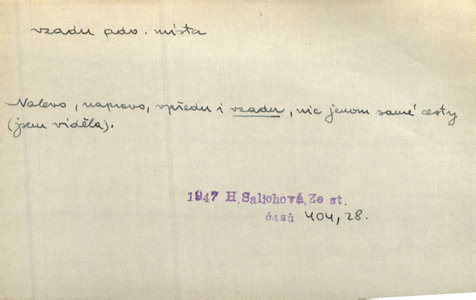 vzadu adv. místa
Nalevo, napravo, vpředu i vzadu, nic jenom samé cesty
(jsem viděla).
1947 H. Salichová, Ze st.
časů 404, 28.